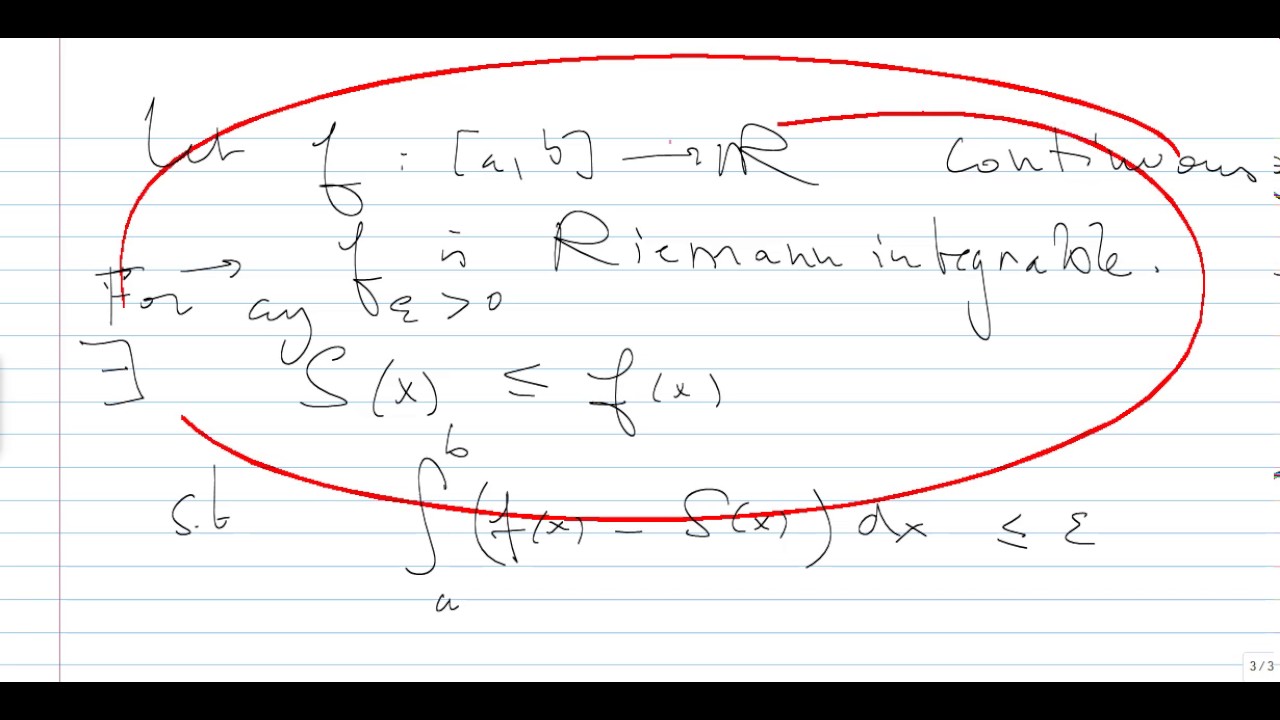 Let f : [a, b] → ℝ continuous
→ f is Riemann integrable.
For any ε > 0
∃ S(x) ≤ f(x)
s.t ∫_a^b (f(x) - S(x)) dx ≤ ε
3/3